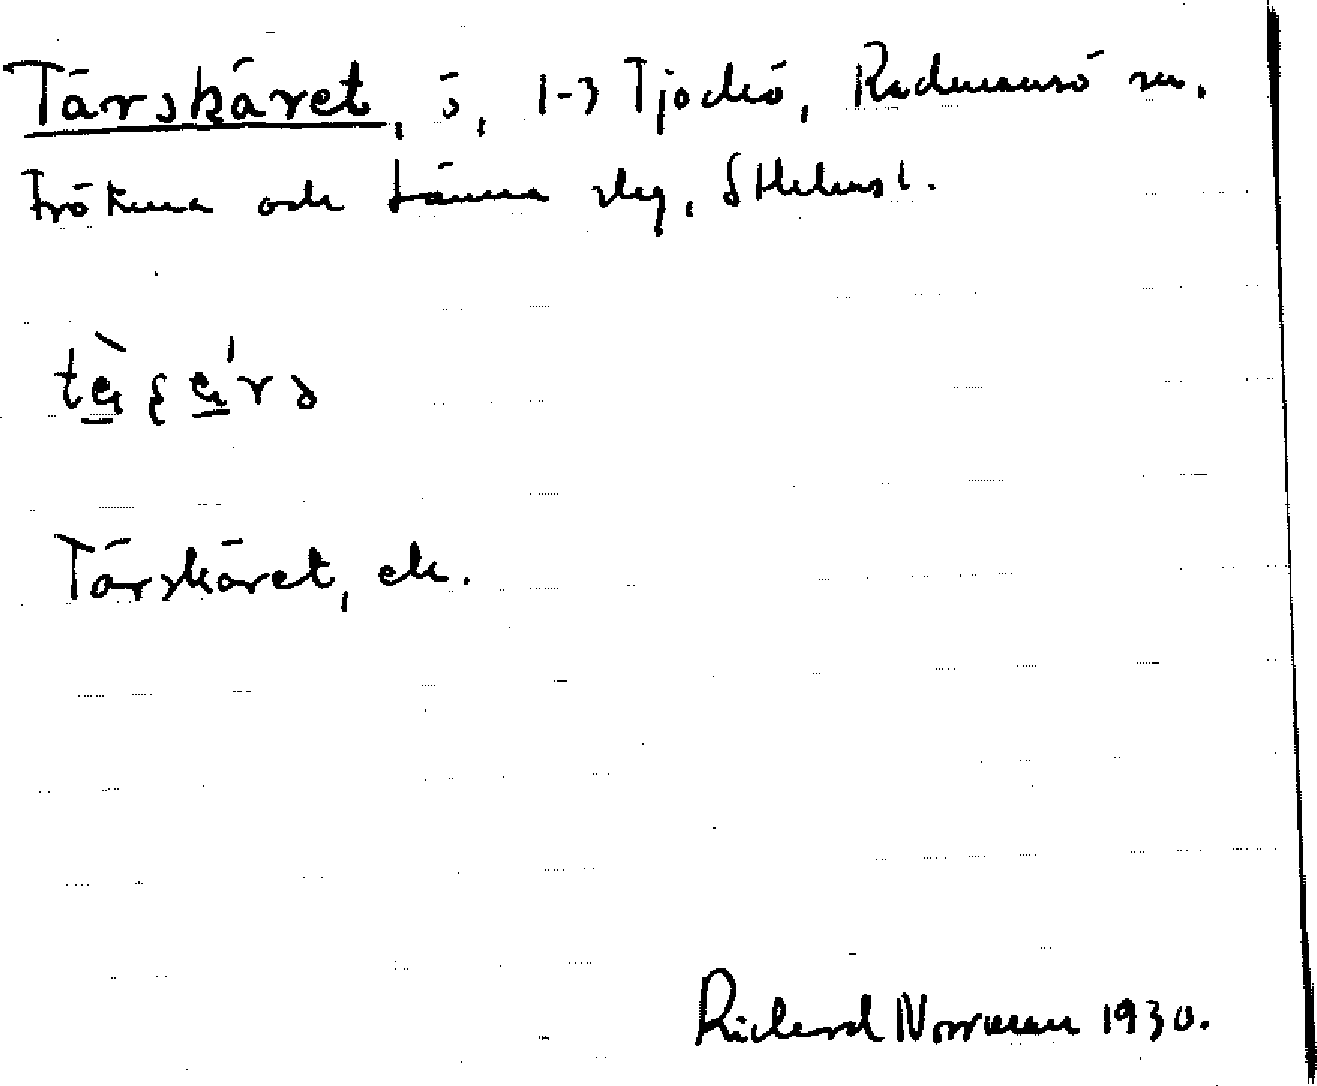 Tärskäret, ö, 1-3 Tjockö, Rådmansö sn.
Frötuna och Länna slg, Sthlms l.
Tärskäret, ek.
Richard Norrman 1930.